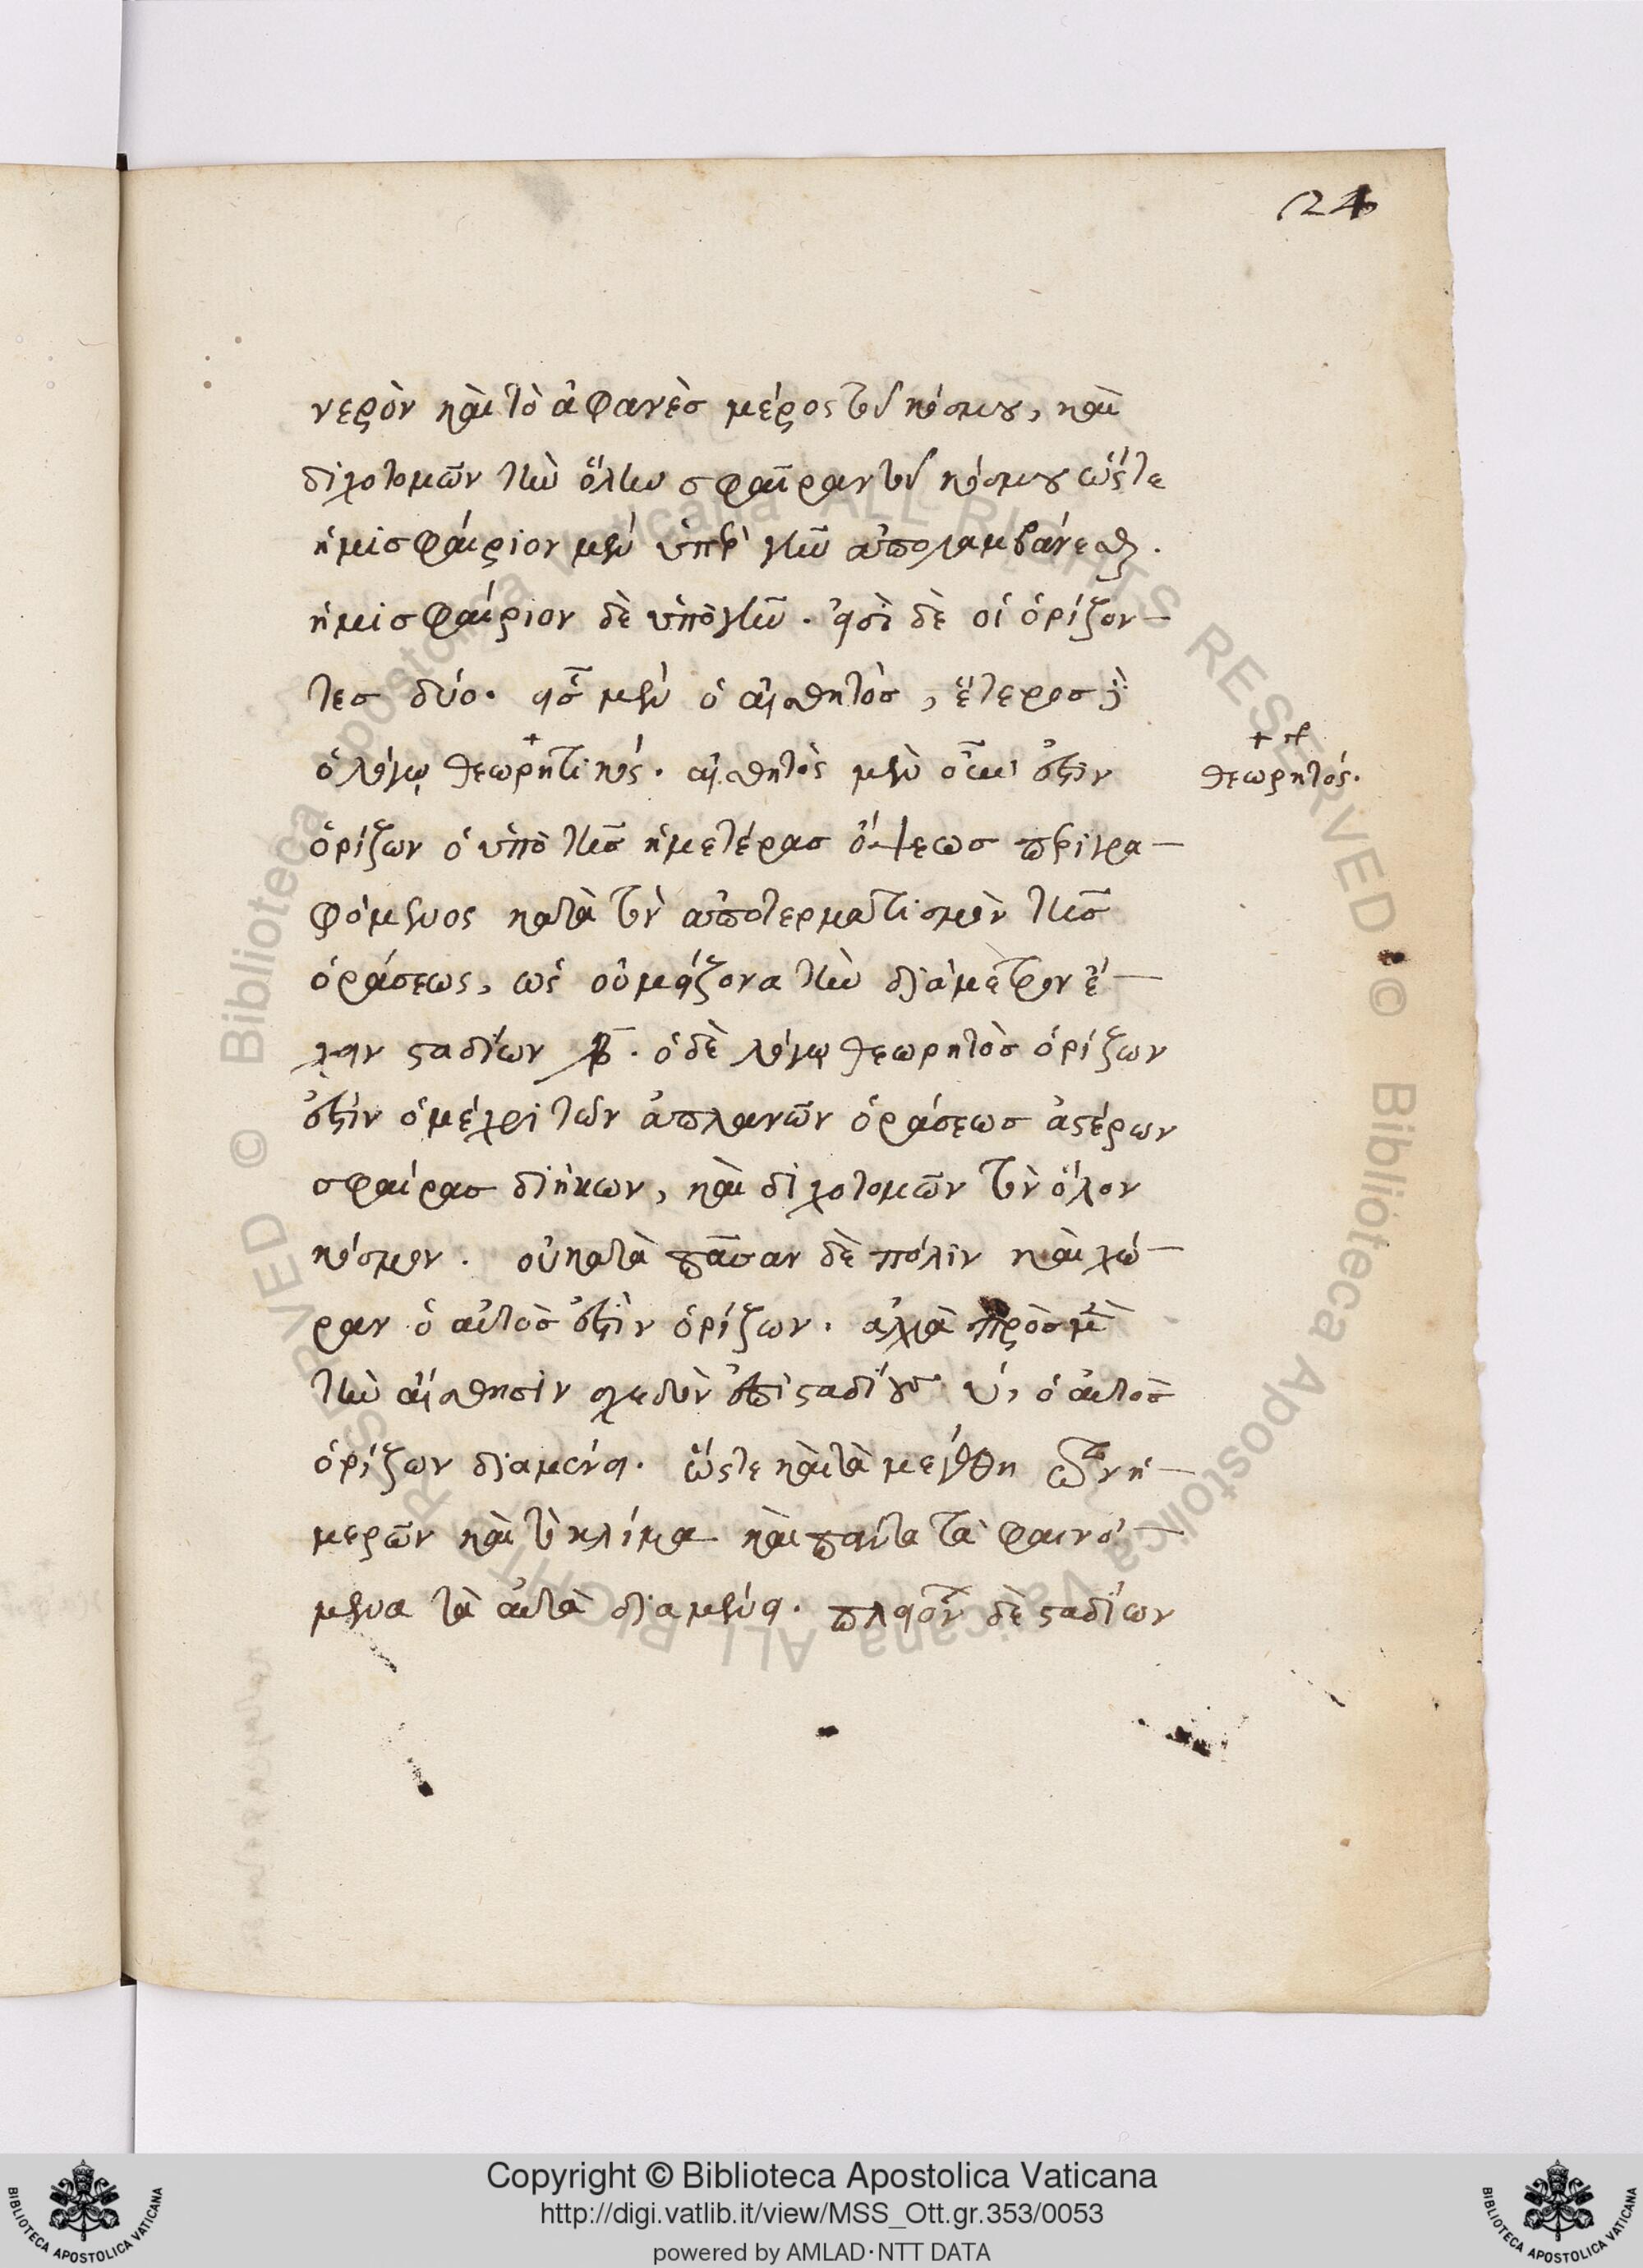 24
νερὸν καὶ τὸ ἀφανὲσ μέρος τοῦ κόσμου, καὶ
διχοτομῶν τὴν ὅλην σφαῖραν τοῦ κόσμου ὥστε
ἡμισφαίριον μὲν ὑπὲρ γῆν ἀπολαμβάνεσθαι.
ἡμισφαίριον δὲ ὑπὸ γῆν. εἰσὶ δὲ οἱ ὁρίζον-
τεσ δύο. εἷσ μὲν ὁ αἰσθητὸσ, ἕτεροσ δὲ
ὁ λόγῳ θεωρητικός. αἰσθητὸς μὲν οὖν ἐστὶν
θεωρητός.
ὁρίζων ὁ ὑπὸ τῆσ ἡμετέρασ ὄψεωσ περιγρα-
φόμενος κατὰ τὸν ἀποτερματισμὸν τῆσ
ὁράσεως, ὡς οὐ μείζονα τὴν διάμετρον ἔ-
χειν σταδίων ͵β. ὁ δὲ λόγῳ θεωρητὸσ ὁρίζων
ἐστὶν ὁ μέχρι τῶν ἀπλανῶν ὁράσεωσ ἀστέρων
σφαίρασ διήκων, καὶ διχοτομῶν τὸν ὅλον
κόσμον. οὐ κατὰ πᾶσαν δὲ πόλιν καὶ χώ-
ραν ὁ αὐτὸσ ἐστὶν ὁρίζων. ἀλλὰ πρὸσ μὲν
τὴν αἴσθησιν σχεδὸν ἐπὶ σταδίουσ υ, ὁ αὐτὸσ
ὁρίζων διαμένει. ὥστε καὶ τὰ μεγέθη τῶν ἡ-
μερῶν καὶ τὸ κλίμα καὶ πάντα τὰ φαινό-
μενα τὰ αὐτὰ διαμένει. πλειόνων δὲ σταδίων
Copyright © Biblioteca Apostolica Vaticana
http://digi.vatlib.it/view/MSS_Ott.gr.353/0053
powered by AMLAD·NTT DATA
BIBLIOTECA APOSTOLICA VATICANA
BIBLIOTECA APOSTOLICA VATICANA